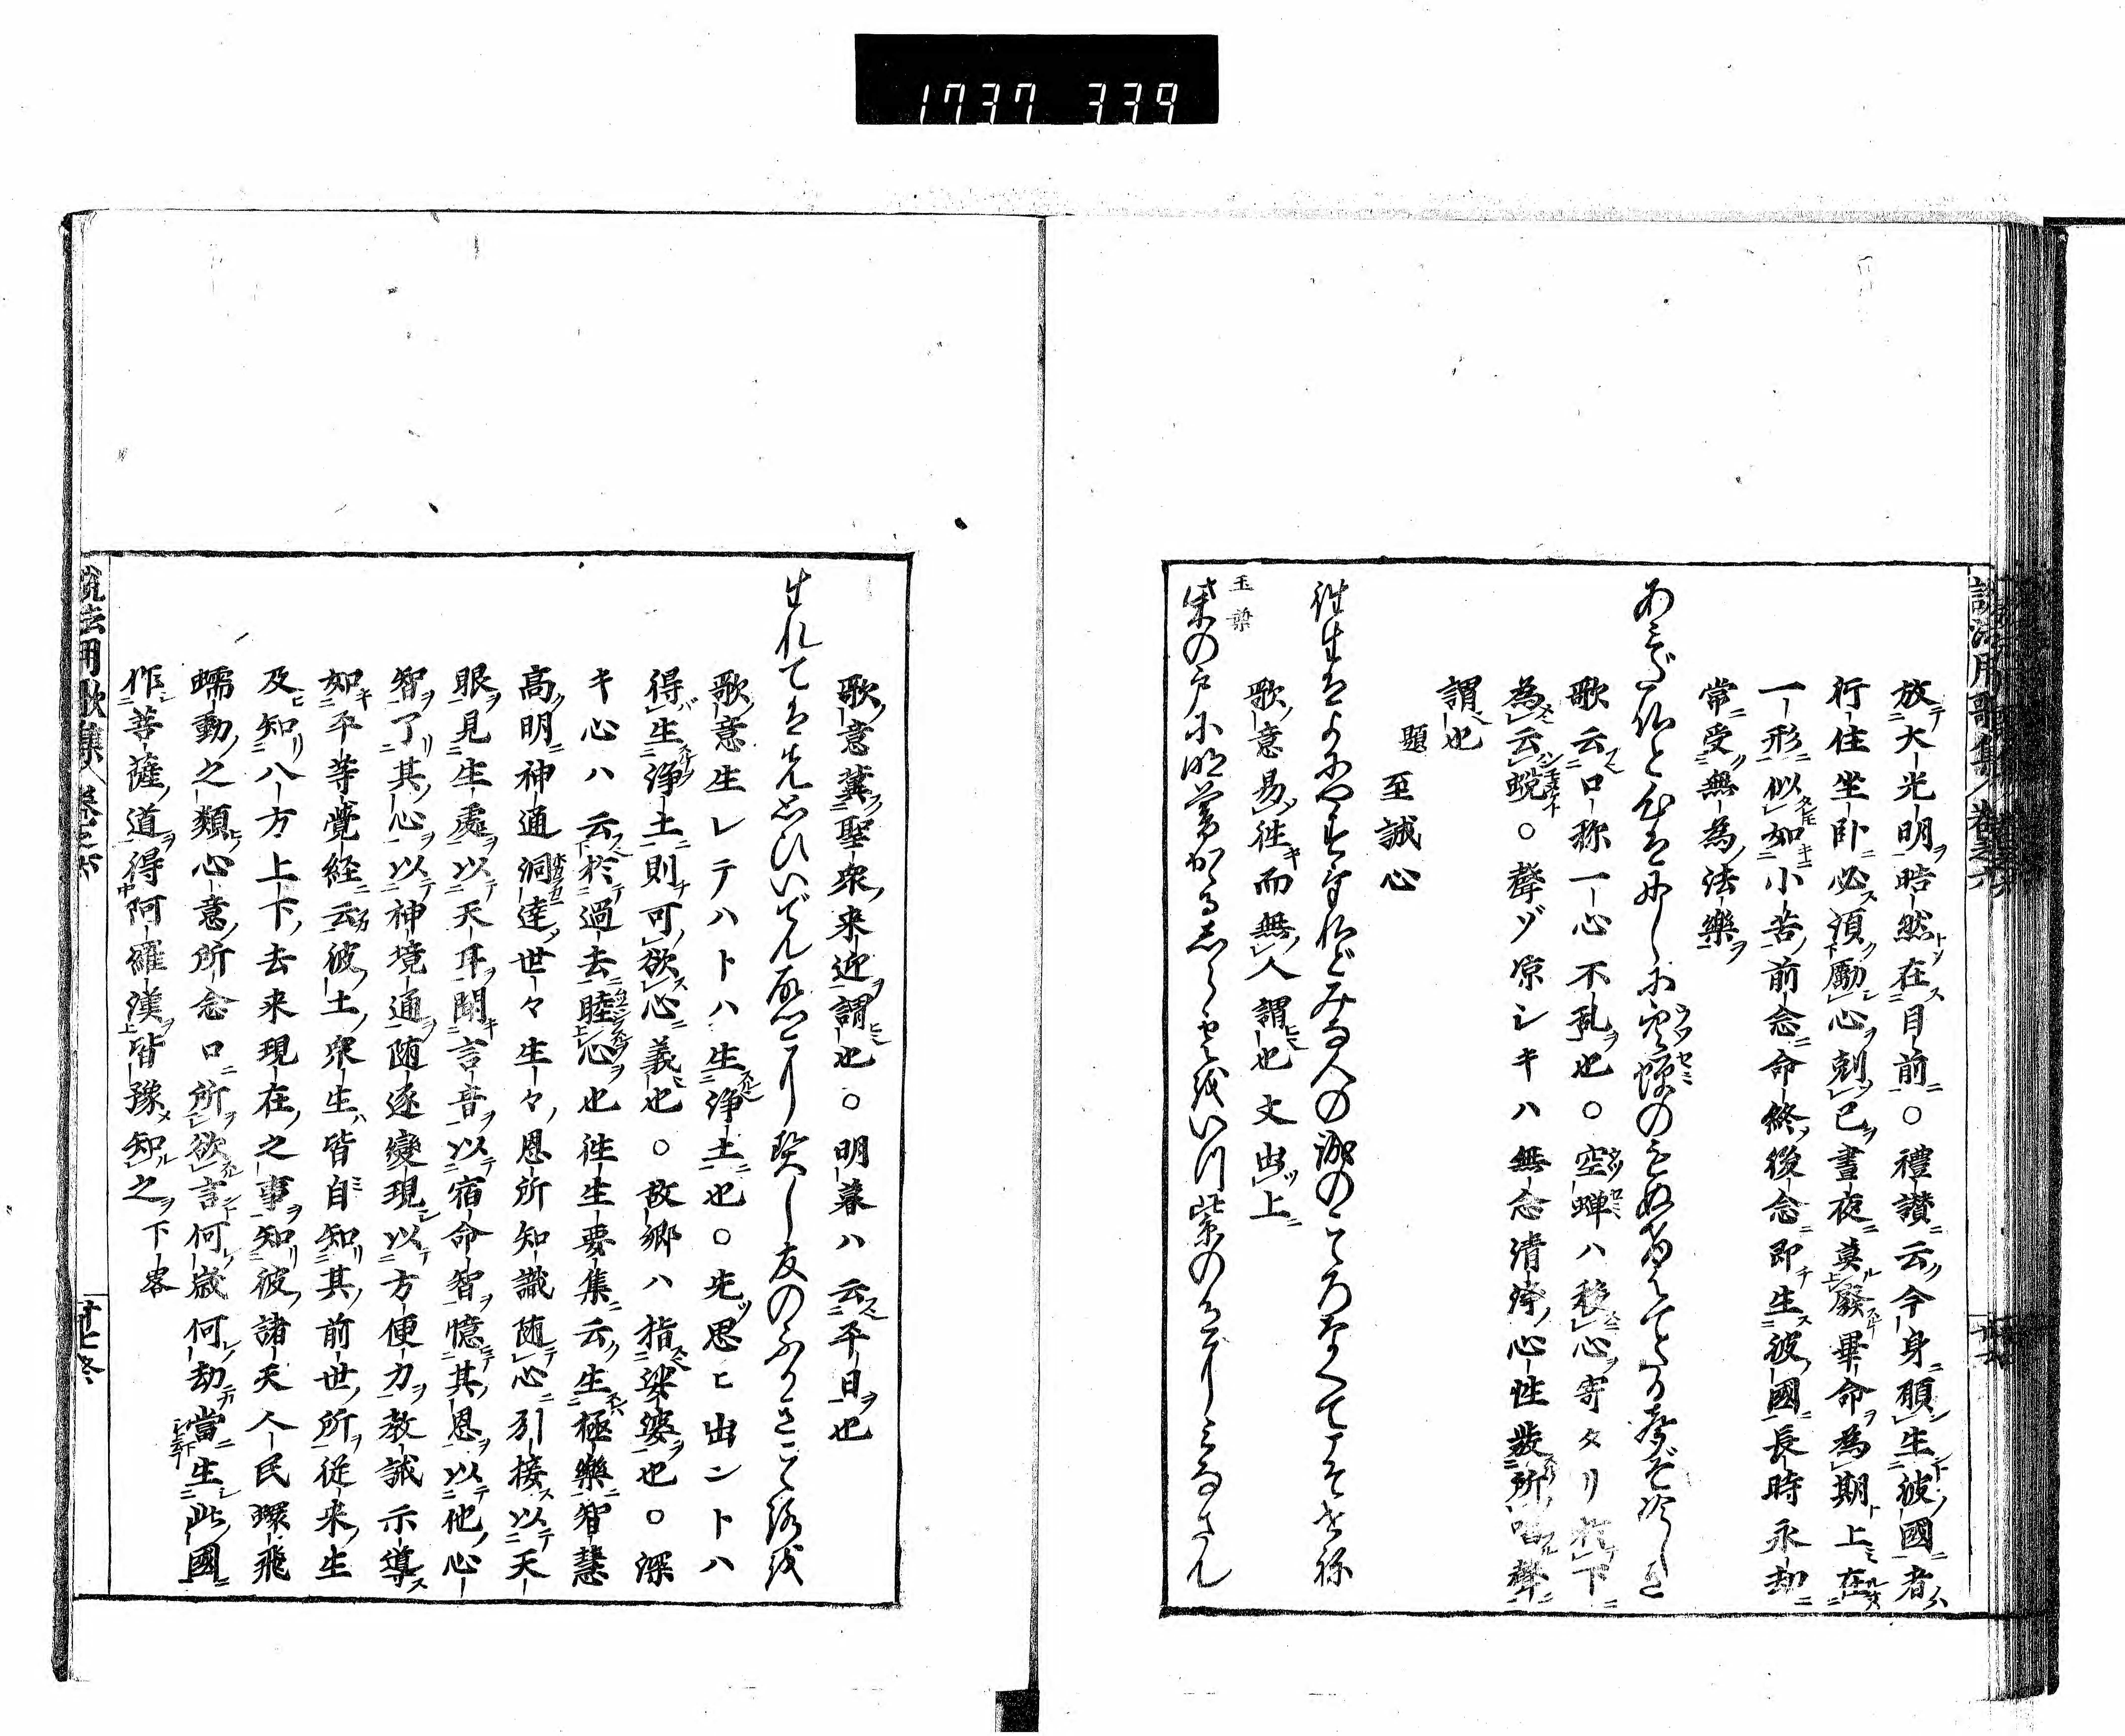 1737 339
放大光明晧然在目前○禮讃云今身願生彼國者
行住坐臥必須勵心剋己晝夜莫廢畢命為期上在
一形似如小苦前念命終後念即生彼國長時永劫
常受無為法樂
あみだ佛と
歌云口称一心不乱也○空蝉ハ穢心寄タリ於下
為云蛻○聲ゾ凉シキハ無念清浄心性發所唱聲
謂也
題 至誠心
往生はよにやすけれどみな人の誠のこゝろなくてこそせね
歌意易往而無人謂也文出上
玉葉
柴の戸に明暮かゝるしら雲をいつ紫の色にみなさん
歌意冀聖衆来迎謂也○明暮ハ云平日也
生れてはまづ思ひいでん故さとに契し友のふかきこゝろを
歌意生レテハトハ生浄土也○先思ヒ出ントハ
得生浄土則可欲心義也○故郷ハ指娑婆也○深
キ心ハ云於過去睦心也往生要集云生極樂智慧
高明神通洞達世々生々恩所知識随心引接以天
眼見生處以天耳聞言音以宿命智憶其恩以他心
智了其心以神境通随逐變現以方便力教誡示導
如平等覺経云彼土衆生皆自知其前世所従来生
及知八方上下去来現在之事知彼諸天人民蠉飛
蠕動之類心意所念口所欲言何歳何劫當生此國
作菩薩道得阿羅漢皆豫知之下畧
説法用歌集 巻之六 廿七終